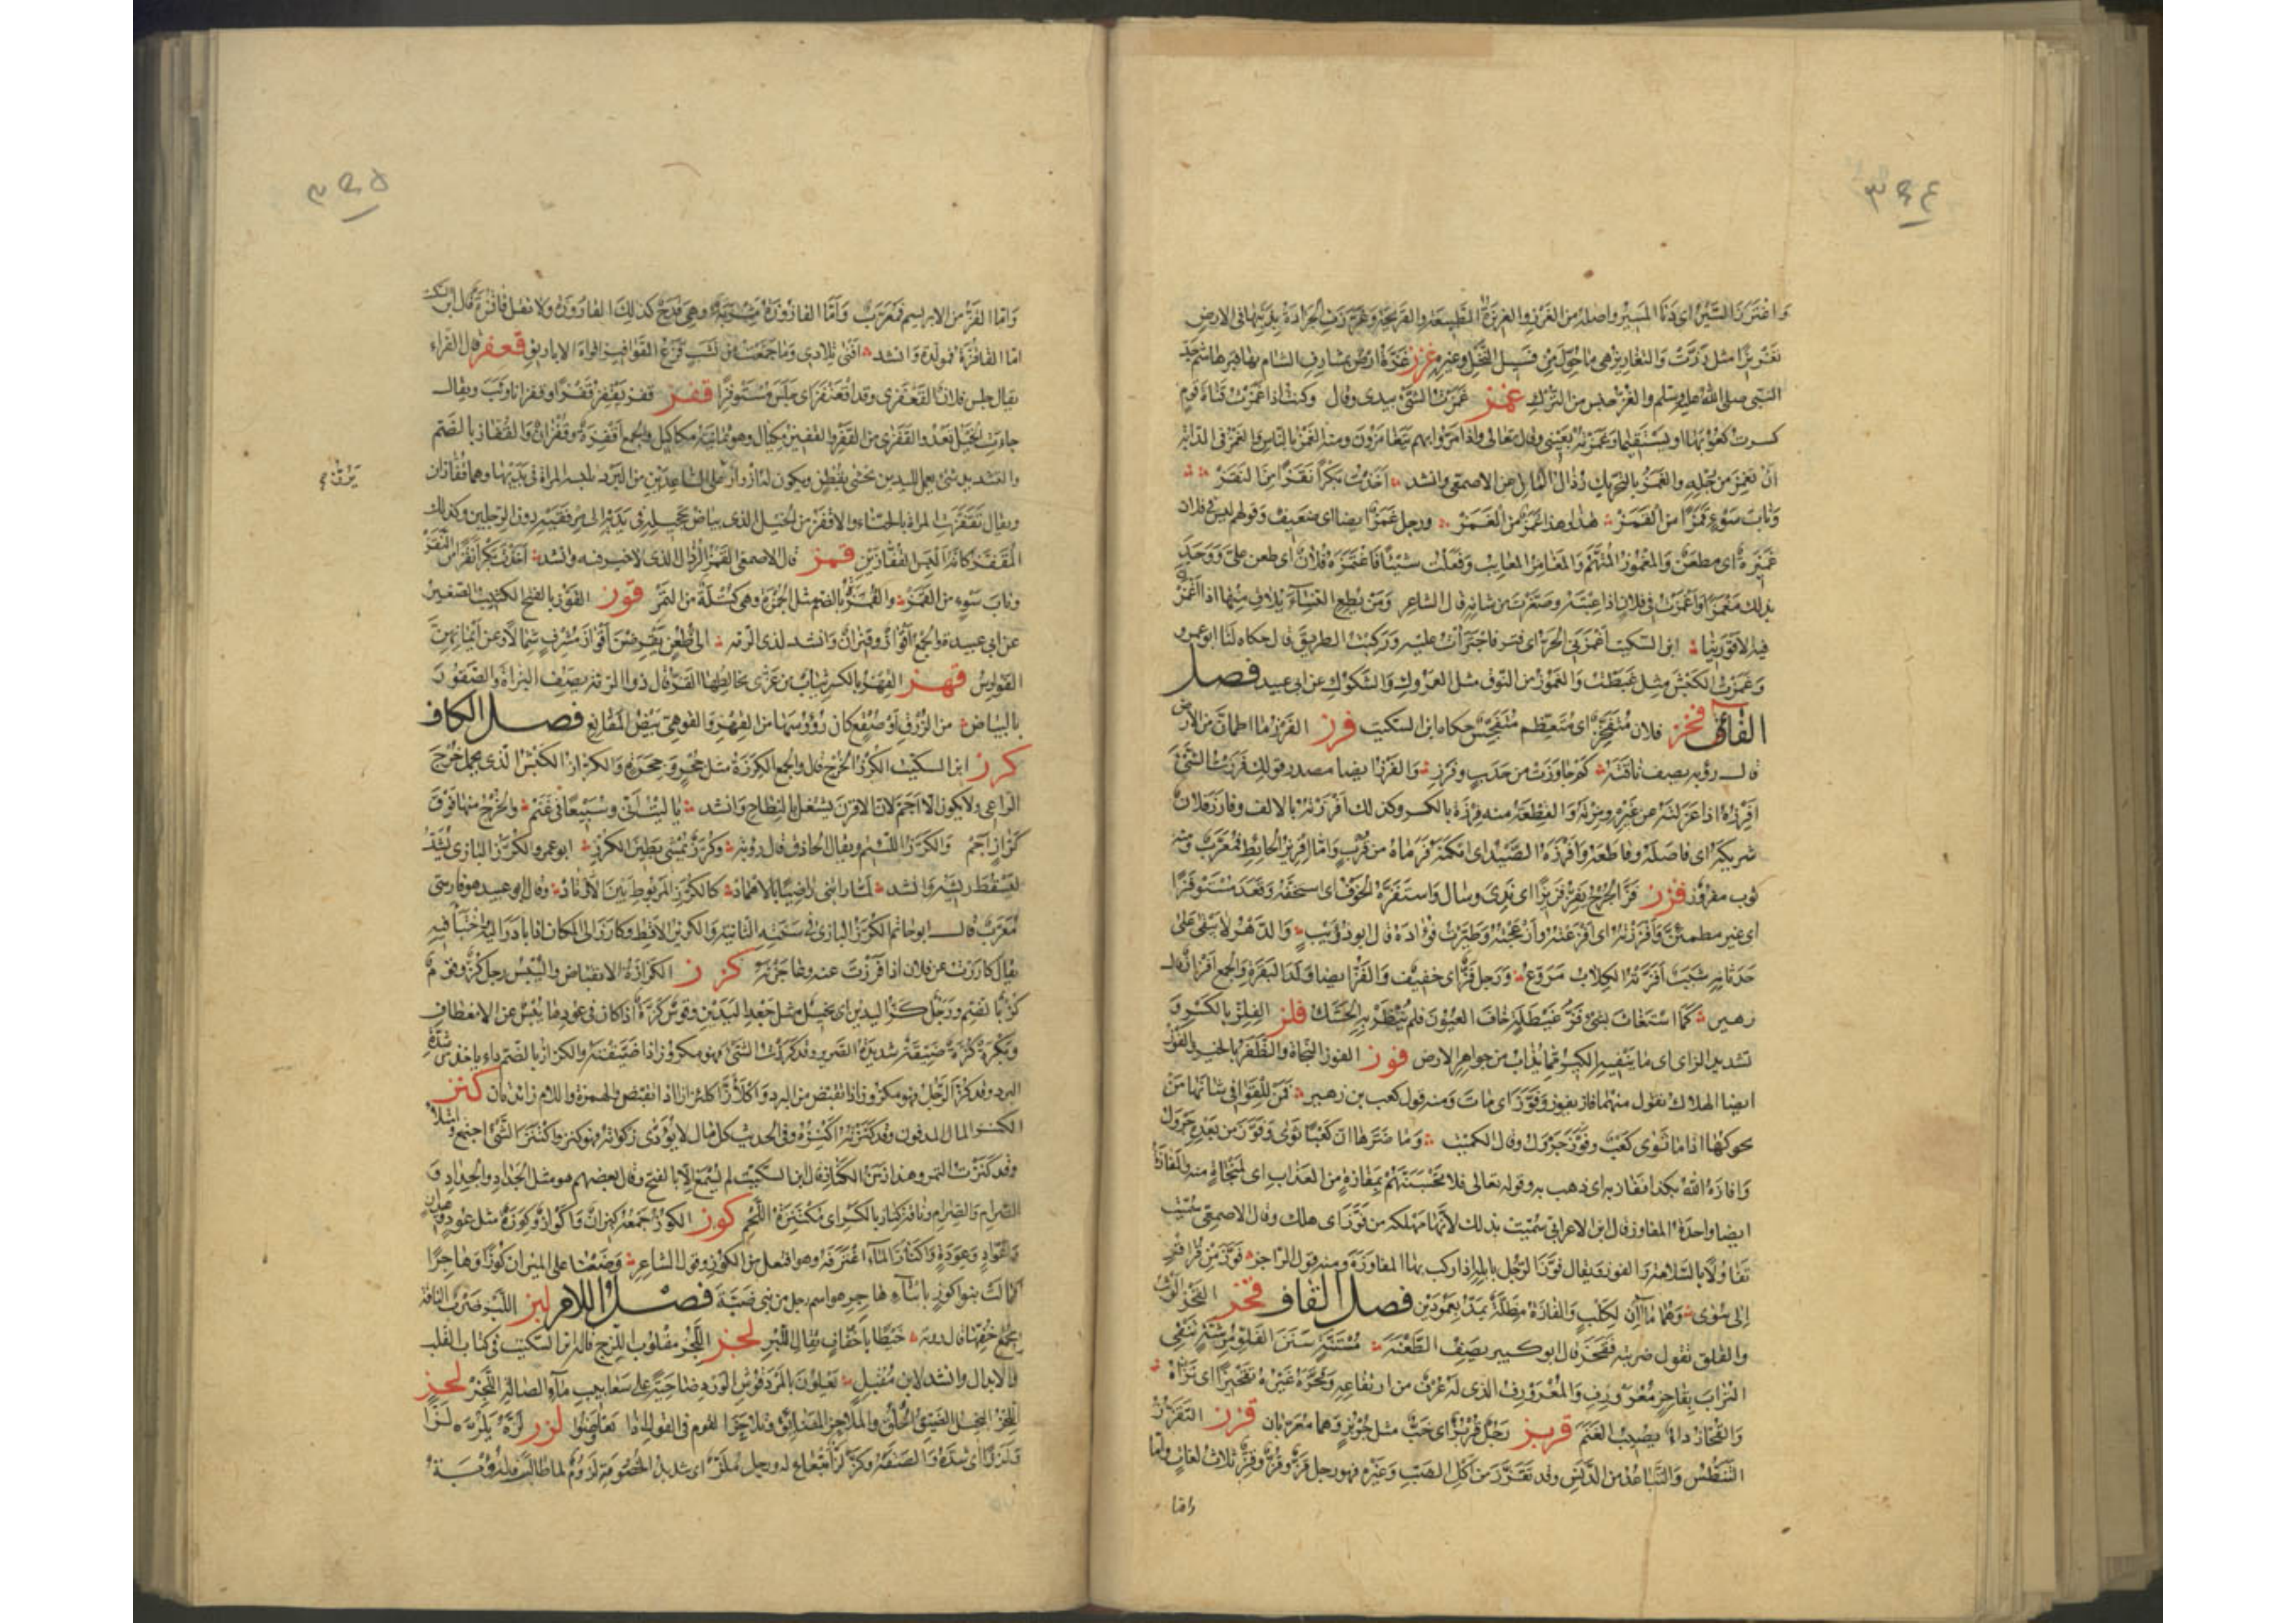 ٣٩٤
واغترز السير اى دنا المسير واصله من الغرز
تغريزا مثل رزت والتغاريز هى ما حول من فسيل النخل وغيره غزز غزة ارض بمشارف الشام بها قبر هاشم جد
النبى صلى الله عليه وسلم والغز جنس من الترك غمز غمزت الشئ بيدى وقال وكنت اذا غمزت قناة قوم
كسرت كعوبها او تستقيما وغمزته بعينى وقال تعالى واذا مروا بهم يتغامزون ومنه الغمز بالناس والغمز فى الدابة
ان تغمز من رجله والغمز بالتحريك رذال المال عن الاصمعى وانشد اخذت بكرا نقزا من النقز
وناب سوء قمزا من القمز هذا وهذا غمز من الغمز ورجل غمز ايضا اى ضعيف وقولهم ليس فى فلان
غميزة اى مطعن والمغموز المتهم والمغامز المعايب وفعلت شيئا فاغتمزه فلان اى طعن على ووجد
بذلك مغمزا واغمزت فى فلان اذا عبته وصغرت من شانه قال الشاعر ومن يطع النساء يلاق منها اذا اغمزن
فيه الاقورينا ابن السكيت اغمزنى الحر اى فتر فاجترأت عليه وركبت الطريق قال حكاه لنا ابو عمرو
وغمزت الكبش مثل غبطت والغموز من النوق مثل العروك والشكوك عن ابى عبيد فصل
الفاء فخز فلان متفخز اى متعظم متفجس حكاه ابن السكيت فرز الفرز ما اطمان من الارض
قال رؤبة يصف ناقته كم جاوزت من حدب وفرز والفرز ايضا مصدر قولك فرزت الشئ
افرزه اذا عزلته عن غيره ومزته والقطعة منه فرزة بالكسر وكذلك افرزته بالالف وفارز فلان
شريكه اى فاصله وقاطعه وافرزه الصيد اى امكنه فرماه من قرب واما افريز الحائط فمعرب ومنه
ثوب مفروز فزز فز الجرح يفز فزيزا اى ندى وسال واستفزه الخوف اى استخفه وقعد مستوفزا
اى غير مطمئن وافززته اى افزعته وازعجته وطيرت فؤاده قال ابو ذؤيب والدهر لا يبقى على
حدثانه شبب افزته الكلاب مروع ورجل فز اى خفيف والفز ايضا ولد البقرة والجمع افزاز قال
زهير كما استغاث بشئ فز غيطلة خاف العيون فلم ينظر به الحشك فلز الفلز بالكسر و
تشديد الزاى ما ينفيه الكير مما يذاب من جواهر الارض فوز الفوز النجاة والظفر بالخير والفوز
ايضا الهلاك تقول منهما فاز يفوز وفوز اى مات ومنه قول كعب بن زهير فمن للقوافى شانها من
يحوكها اذا ما ثوى كعب وفوز جرول وقال الكميت وما ضرها ان كعبا ثوى وفوز من بعده جرول
وافازه الله بكذا ففاز به اى ذهب به وقوله تعالى فلا تحسبنهم بمفازة من العذاب اى بمنجاة منه والمفازة
ايضا واحدة المفاوز قال ابن الاعرابى سميت بذلك لانها مهلكة من فوز اى هلك وقال الاصمعى سميت
تفاؤلا بالسلامة والفوز ويقال فوز الرجل بابله اذا ركب بها المفازة ومنه قول الراجز فوز من قراقر
الى سوى وهما ماآن لكلب والفازة مظلة تمد بعمودين فصل القاف قحز القحز الوثب
والقلق تقول ضربته فقحز قال ابو كبير يصف الطعنة مستنة سنن الفلو مرشة تنفى
التراب بقاحز معرورف والمعرورف الذى له عرف من ارتفاعه وقحزه غيره تقحيزا اى نزاه
والقحاز داء يصيب الغنم قربز رجل قربز اى خب مثل جربز وهما معربان قزز التقزز
التنطس والتباعد من الدنس وقد تقزز من اكل الضب وغيره فهو رجل قز وقز وقز ثلاث لغات واما
واما
٣٩٥
واما القز من الابريسم فمعرب واما القازوزة مشربة وهى قدح كذلك القاروزة ولا تقل قاقزة قال ابن السكيت
اما القاقزة فمولدة وانشد افنى تلادى وما جمعت من نشب قرع القواقيز افواه الاباريق قعفز قال الفراء
يقال جلس فلان القعفزى وقد اقعنفز اى جلس مستوفزا قفز قفز يقفز قفزا وقفزانا وثب ويقال
جاءت الخيل تعدو القفزى من القفز والقفيز مكيال وهو ثمانية مكاكيك والجمع اقفزة وقفزان والقفاز بالضم
والتشديد شئ يعمل لليدين يحشى بقطن ويكون له ازرار على الساعدين من البرد تلبسه المراة فى يديها وهما قفازان
يزر م
ويقال تقفزت المراة بالحناء والاقفز من الخيل الذى بياض تحجيله فى يديه الى مرفقيه دون الرجلين وكذلك
المقفز كانه البس القفازين قمز قال الاصمعى القمز الرذال الذى لا خير فيه وانشد اخذت بكرا نقزا من النقز
وناب سوء من القمز والقمزة بالضم مثل الجمزة وهى كتلة من التمر قوز القوز بالفتح الكثيب الصغير
عن ابى عبيدة والجمع اقواز وقيزان وانشد لذى الرمة الى ظعن يقرضن اقواز مشرف شمالا وعن ايمانهن
الفوارس قهز القهز بالكسر ثياب من مرعزى يخالطها القز قال ذو الرمة يصف البزاة والصقور
بالبياض من الزرق او صقع كان رؤوسها من القهز والقوهى بيض المقانع فصل الكاف
كرز ابن السكيت الكرز الخرج قال والجمع الكرزة مثل جحر وجحرة والكراز الكبش الذى يحمل خرج
الراعى ولا يكون الا اجم لان الاقرن يشتغل بالنطاح وانشد يا ليت انى وسبيعا فى غنم والخرج منها فوق
كراز اجم والكرز اللئيم ويقال الحاذق قال رؤبة وكرز يمشى بطين الكرز ابو عمرو الكرز البازى يشد
ليسقط ريشه وانشد لما راتنى راضيا بالاهماد كالكرز المربوط بين الاوتاد وقال ابو عبيد هو فارسى
معرب قال ابو حاتم الكرز البازى فى سنته الثانية والكريز الاقط وكارز الى المكان اذا بادر اليه واختبأ فيه
يقال كارزت عن فلان اذا فررت عنه وعاجزته كزز الكزازة الانقباض واليبس رجل كز وقوم
كز بالضم ورجل كز اليدين اى بخيل مثل جعد اليدين وقوس كزة اذا كان فى عودها يبس عن الانعطاف
وبكرة كزة ضيقة شديدة الصرير وقد كززت الشئ فهو مكزوز اذا ضيقته والكزاز بالضم داء ياخذ من شدة
البرد وقد كز الرجل فهو مكزوز اذا تقبض من البرد واكلأز اكلئزازا اذا انقبض والهمزة واللام زائدتان كنز
الكنز المال المدفون وقد كنزته اكنزه وفى الحديث كل مال لا يؤدى زكوته فهو كنز واكتنز الشئ اجتمع وامتلأ
وقد كنزت التمر وهذا زمن الكناز قال ابن السكيت لم يسمع الا بالفتح وقال بعضهم هو مثل الجداد والجداد و
الصرام والصرام وناقة كناز بالكسر اى مكتنزة اللحم كوز الكوز جمعه كيزان واكواز وكوزة مثل عود وعيدان
واعواد وعودة واكتاز الماء اغترفه وهو افتعل من الكوز وقول الشاعر وضعنا على الميزان كوزا وهاجرا
فمالت بنو كوز بابناء هاجر هو اسم رجل من بنى ضبة فصل اللام لبز اللبز ضرب الناقة
بجمع خفها قال رؤبة خبطا باخفاف ثقال اللبز لجز اللجز مقلوب اللزج قاله ابن السكيت فى كتاب القلب
والابدال وانشد لابن مقبل يعلون بالمردقوش الورد ضاحية على سعابيب ماء الضالة اللجز لحز
اللحز البخيل الضيق الخلق والملاحز المضايق وتلاحز القوم فى القول اذا تعاوصوا لزز لزه يلزه لزا
ولززا اى شده والصقه وكز لز اتباع له ورجل ملز اى شديد الخصومة لزوم لما طالب قال رؤبة